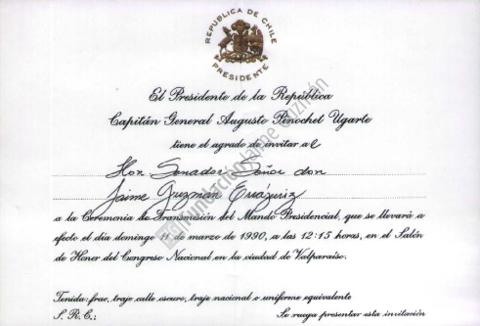 REPUBLICA DE CHILE
PRESIDENTE
El Presidente de la República
Capitán General Augusto Pinochet Ugarte
tiene el agrado de invitar al
Hon. Senador Señor don
Jaime Guzmán Errázuriz
a la Ceremonia de Transmisión del Mando Presidencial, que se llevará a
efecto el día domingo 11 de marzo de 1990, a las 12:15 horas, en el Salón
de Honor del Congreso Nacional, en la ciudad de Valparaíso.
Tenida: frac, traje calle oscuro, traje nacional o uniforme equivalente
S. R. C.:
Se ruega presentar esta invitación
Fundación Jaime Guzmán